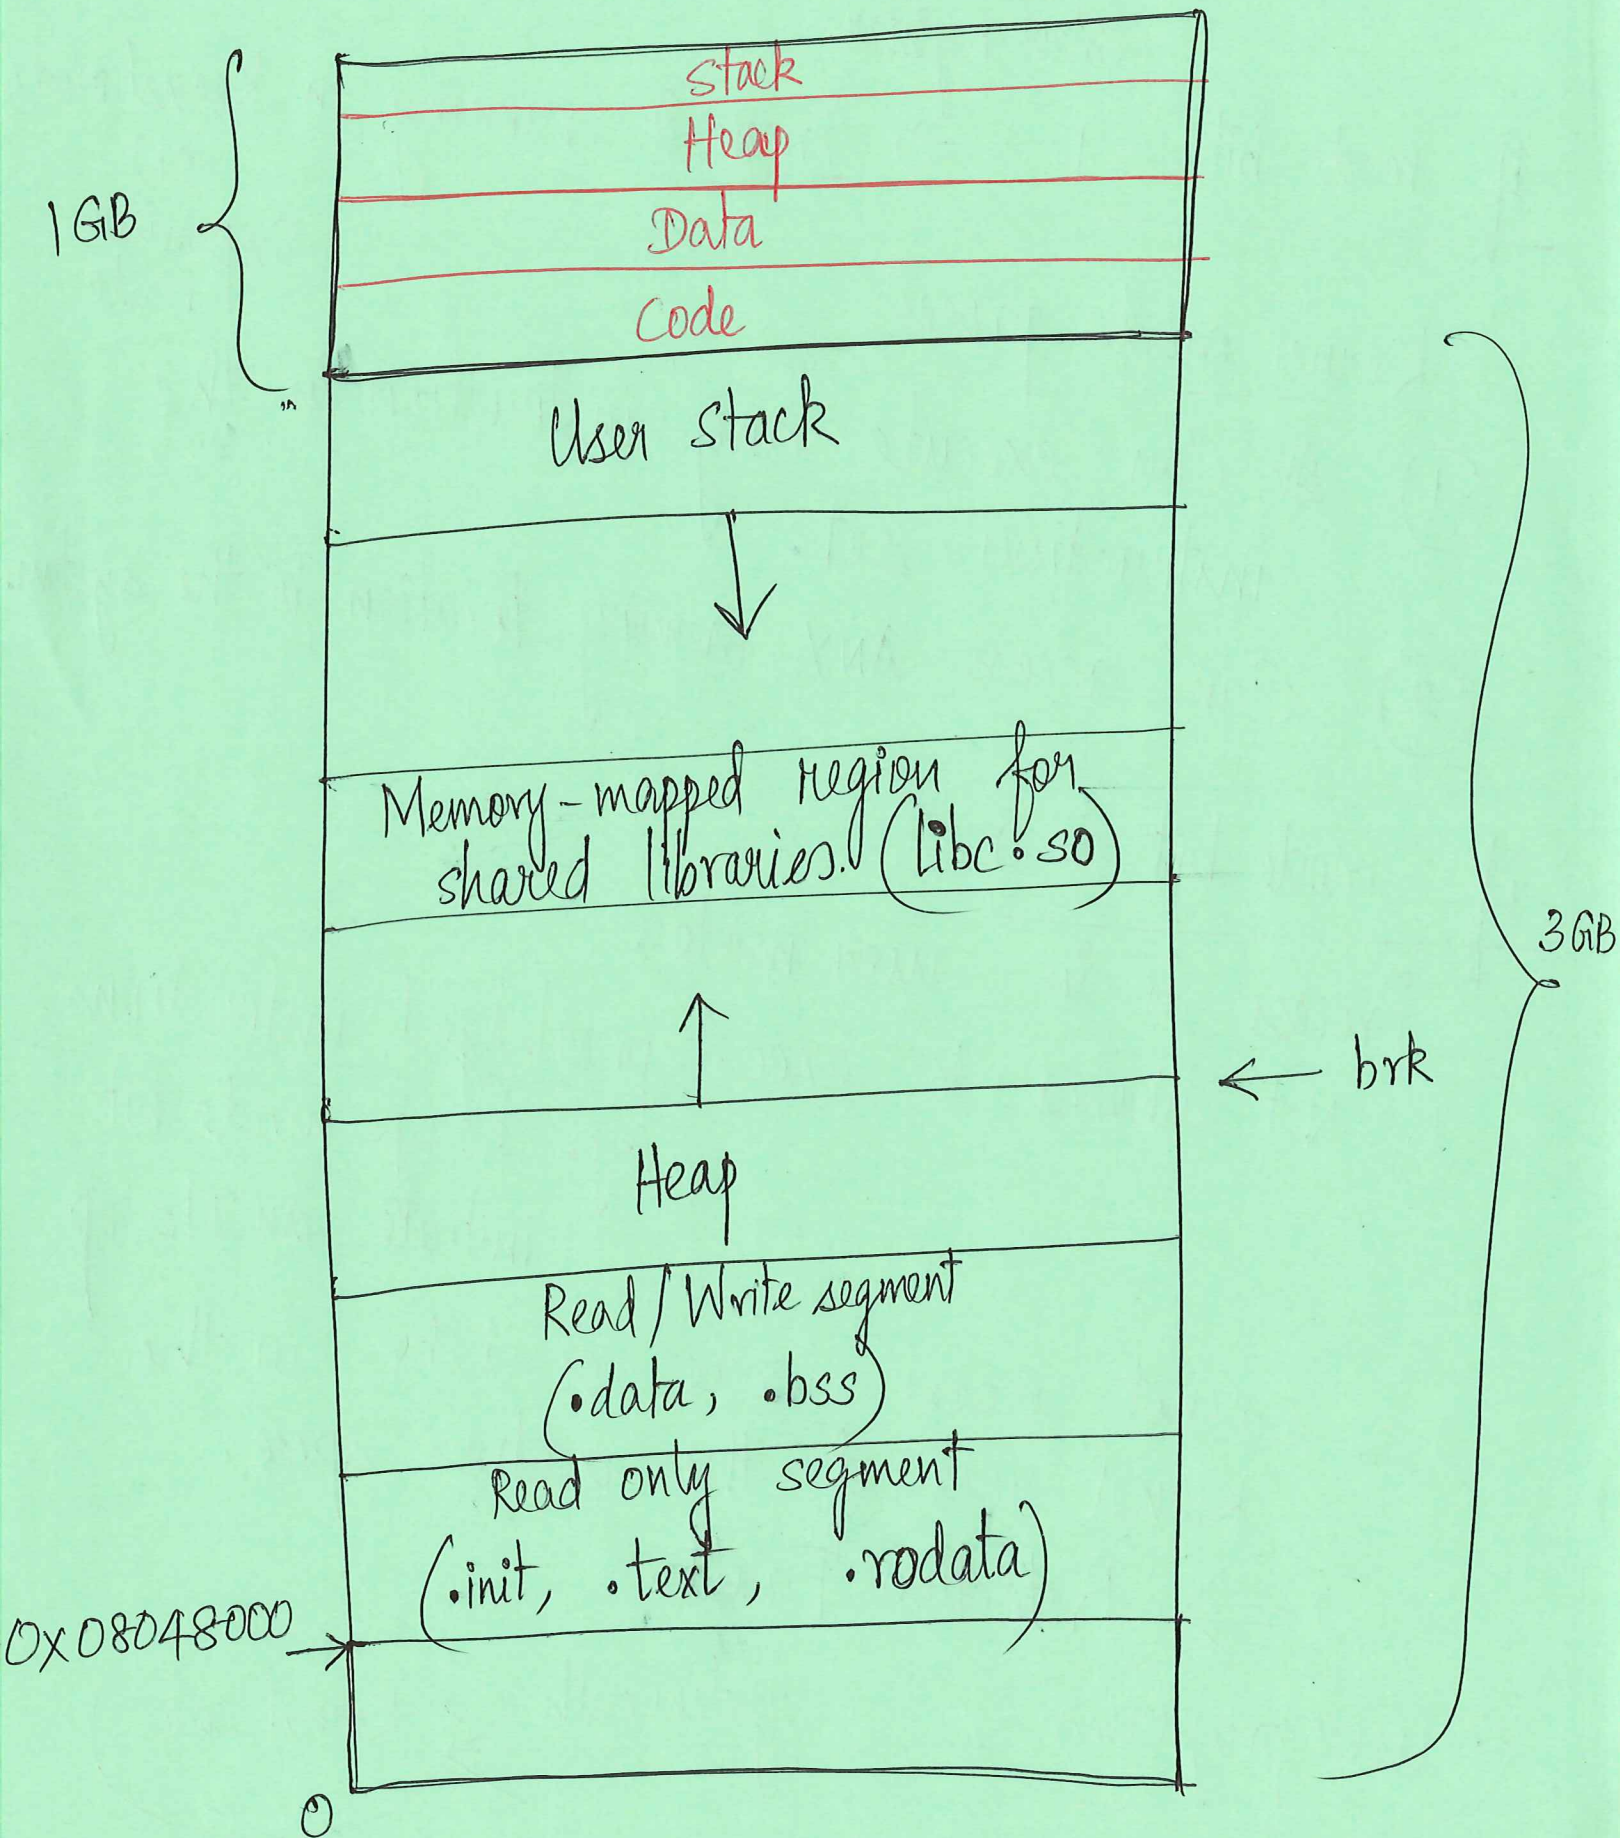 Stack
Heap
Data
Code
1GB
User stack
Memory-mapped region for
shared libraries. (libc.so)
3GB
brk
Heap
Read/Write segment
(.data, .bss)
Read only segment
(.init, .text, .rodata)
0x08048000
0